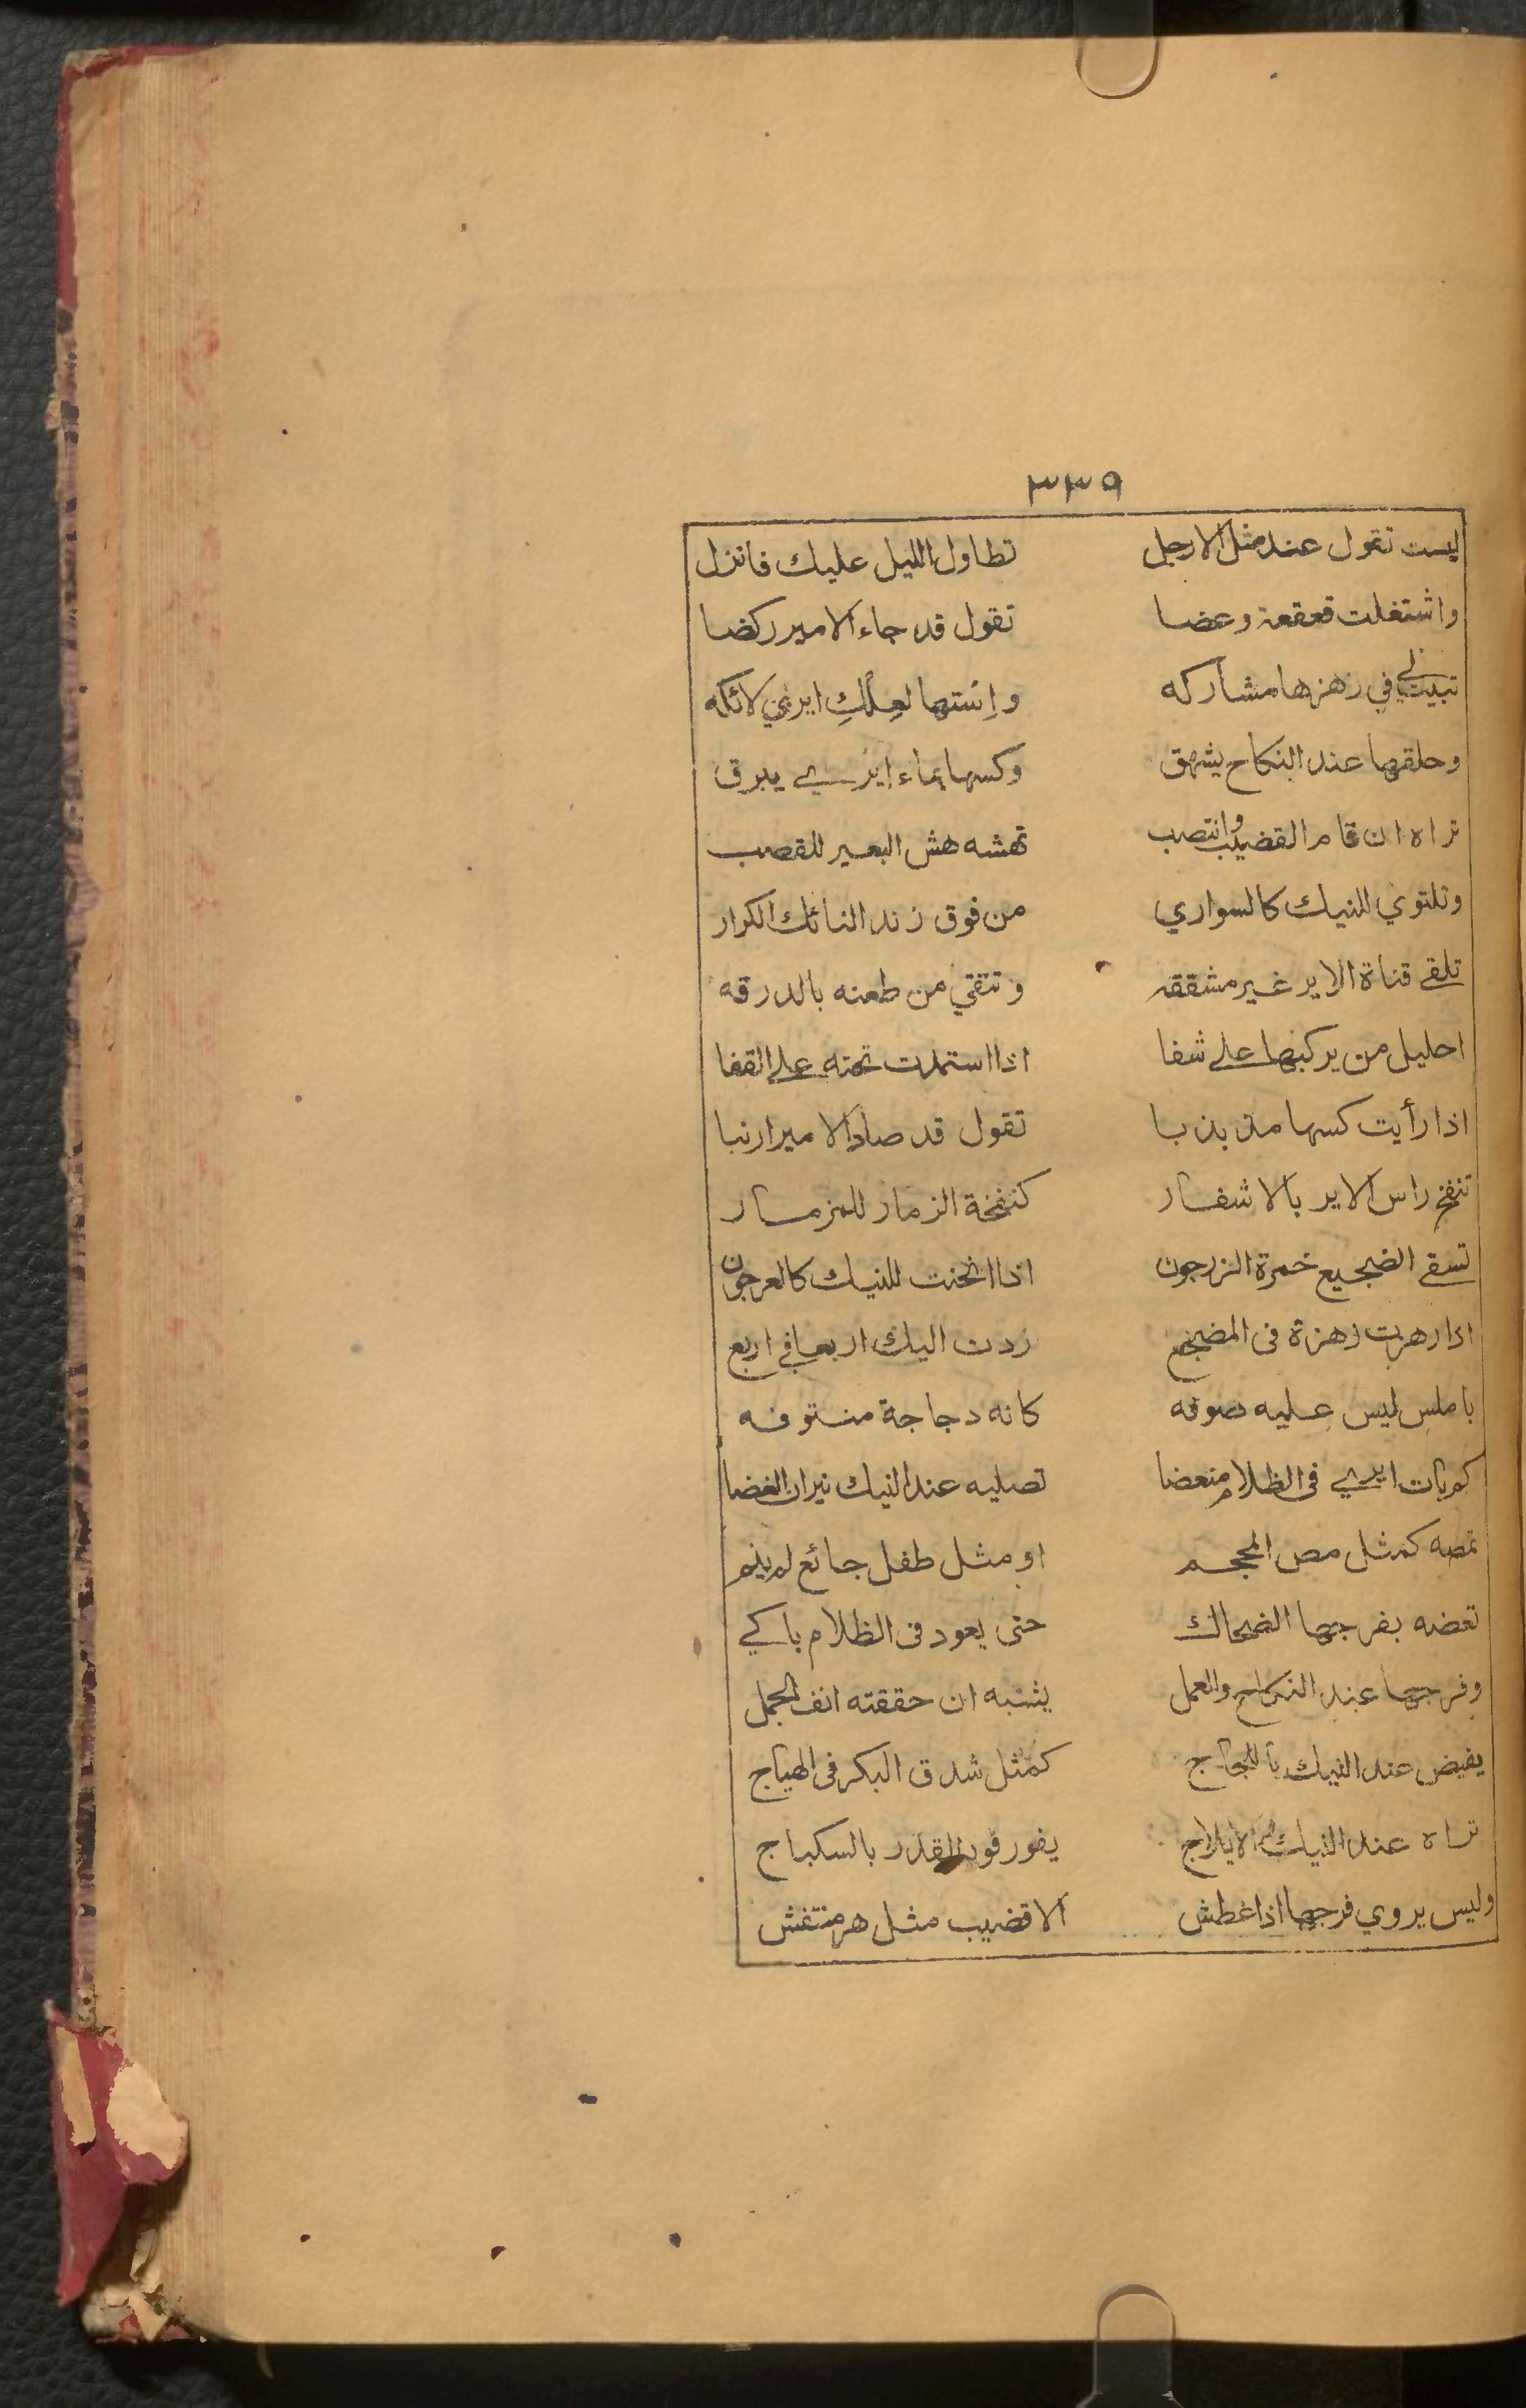 ٣٣٩
ليست تقول عند مثل الارجل تطاول الليل عليك فانزل
واشتغلت قعقعة وعضا تقول قد جاء الامير ركضا
تبيت لي في رهزها مشاركه وإستها لعلك ايري لائكه
وحلقها عند النكاح يشهق وكسها بماء ايري يبرق
تراه ان قام القضيب وانتصب تهشه هش البعير للقصب
وتلتوي للنيك كالسواري من فوق زند النائك الكرار
تلقى قناة الاير غير مشققه وتتقي من طعنه بالدرقه
احليل من يركبها على شفا اذا استملت تحته على القفا
اذا رأيت كسها مذبذبا تقول قد صاد الامير ارنبا
تنفخ راس الاير بالاشفار كنفخة الزمار للمزمار
تسقى الضجيع خمرة الزرجون اذا انحنت للنيك كالعرجون
اذا رهزت رهزة فى المضجع ردت اليك اربعا في اربع
باملس ليس عليه صوفه كانه دجاجة منتوفه
كم بات ايري فى الظلام منعضا تصليه عند النيك نيران الغضا
تمصه كمثل مص المحجم او مثل طفل جائع لم ينم
تعضه بفرجها الضحاك حتى يعود فى الظلام باكي
وفرجها عند النكاح والعمل يشبه ان حققته انف الجمل
يفيض عند النيك باللجاج كمثل شدق البكر فى الهياج
تراه عند النيك الايلاج يفور فور القدر بالسكباج
وليس يروي فرجها اذا عطش الا قضيب مثل هر منتفش